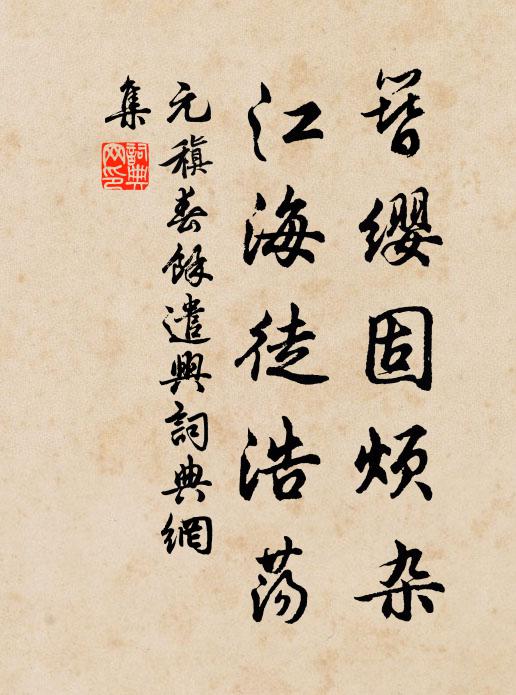 簪缨固烦杂
江海徒浩荡
元稹春馀遣興詞典網
集
詞典網印